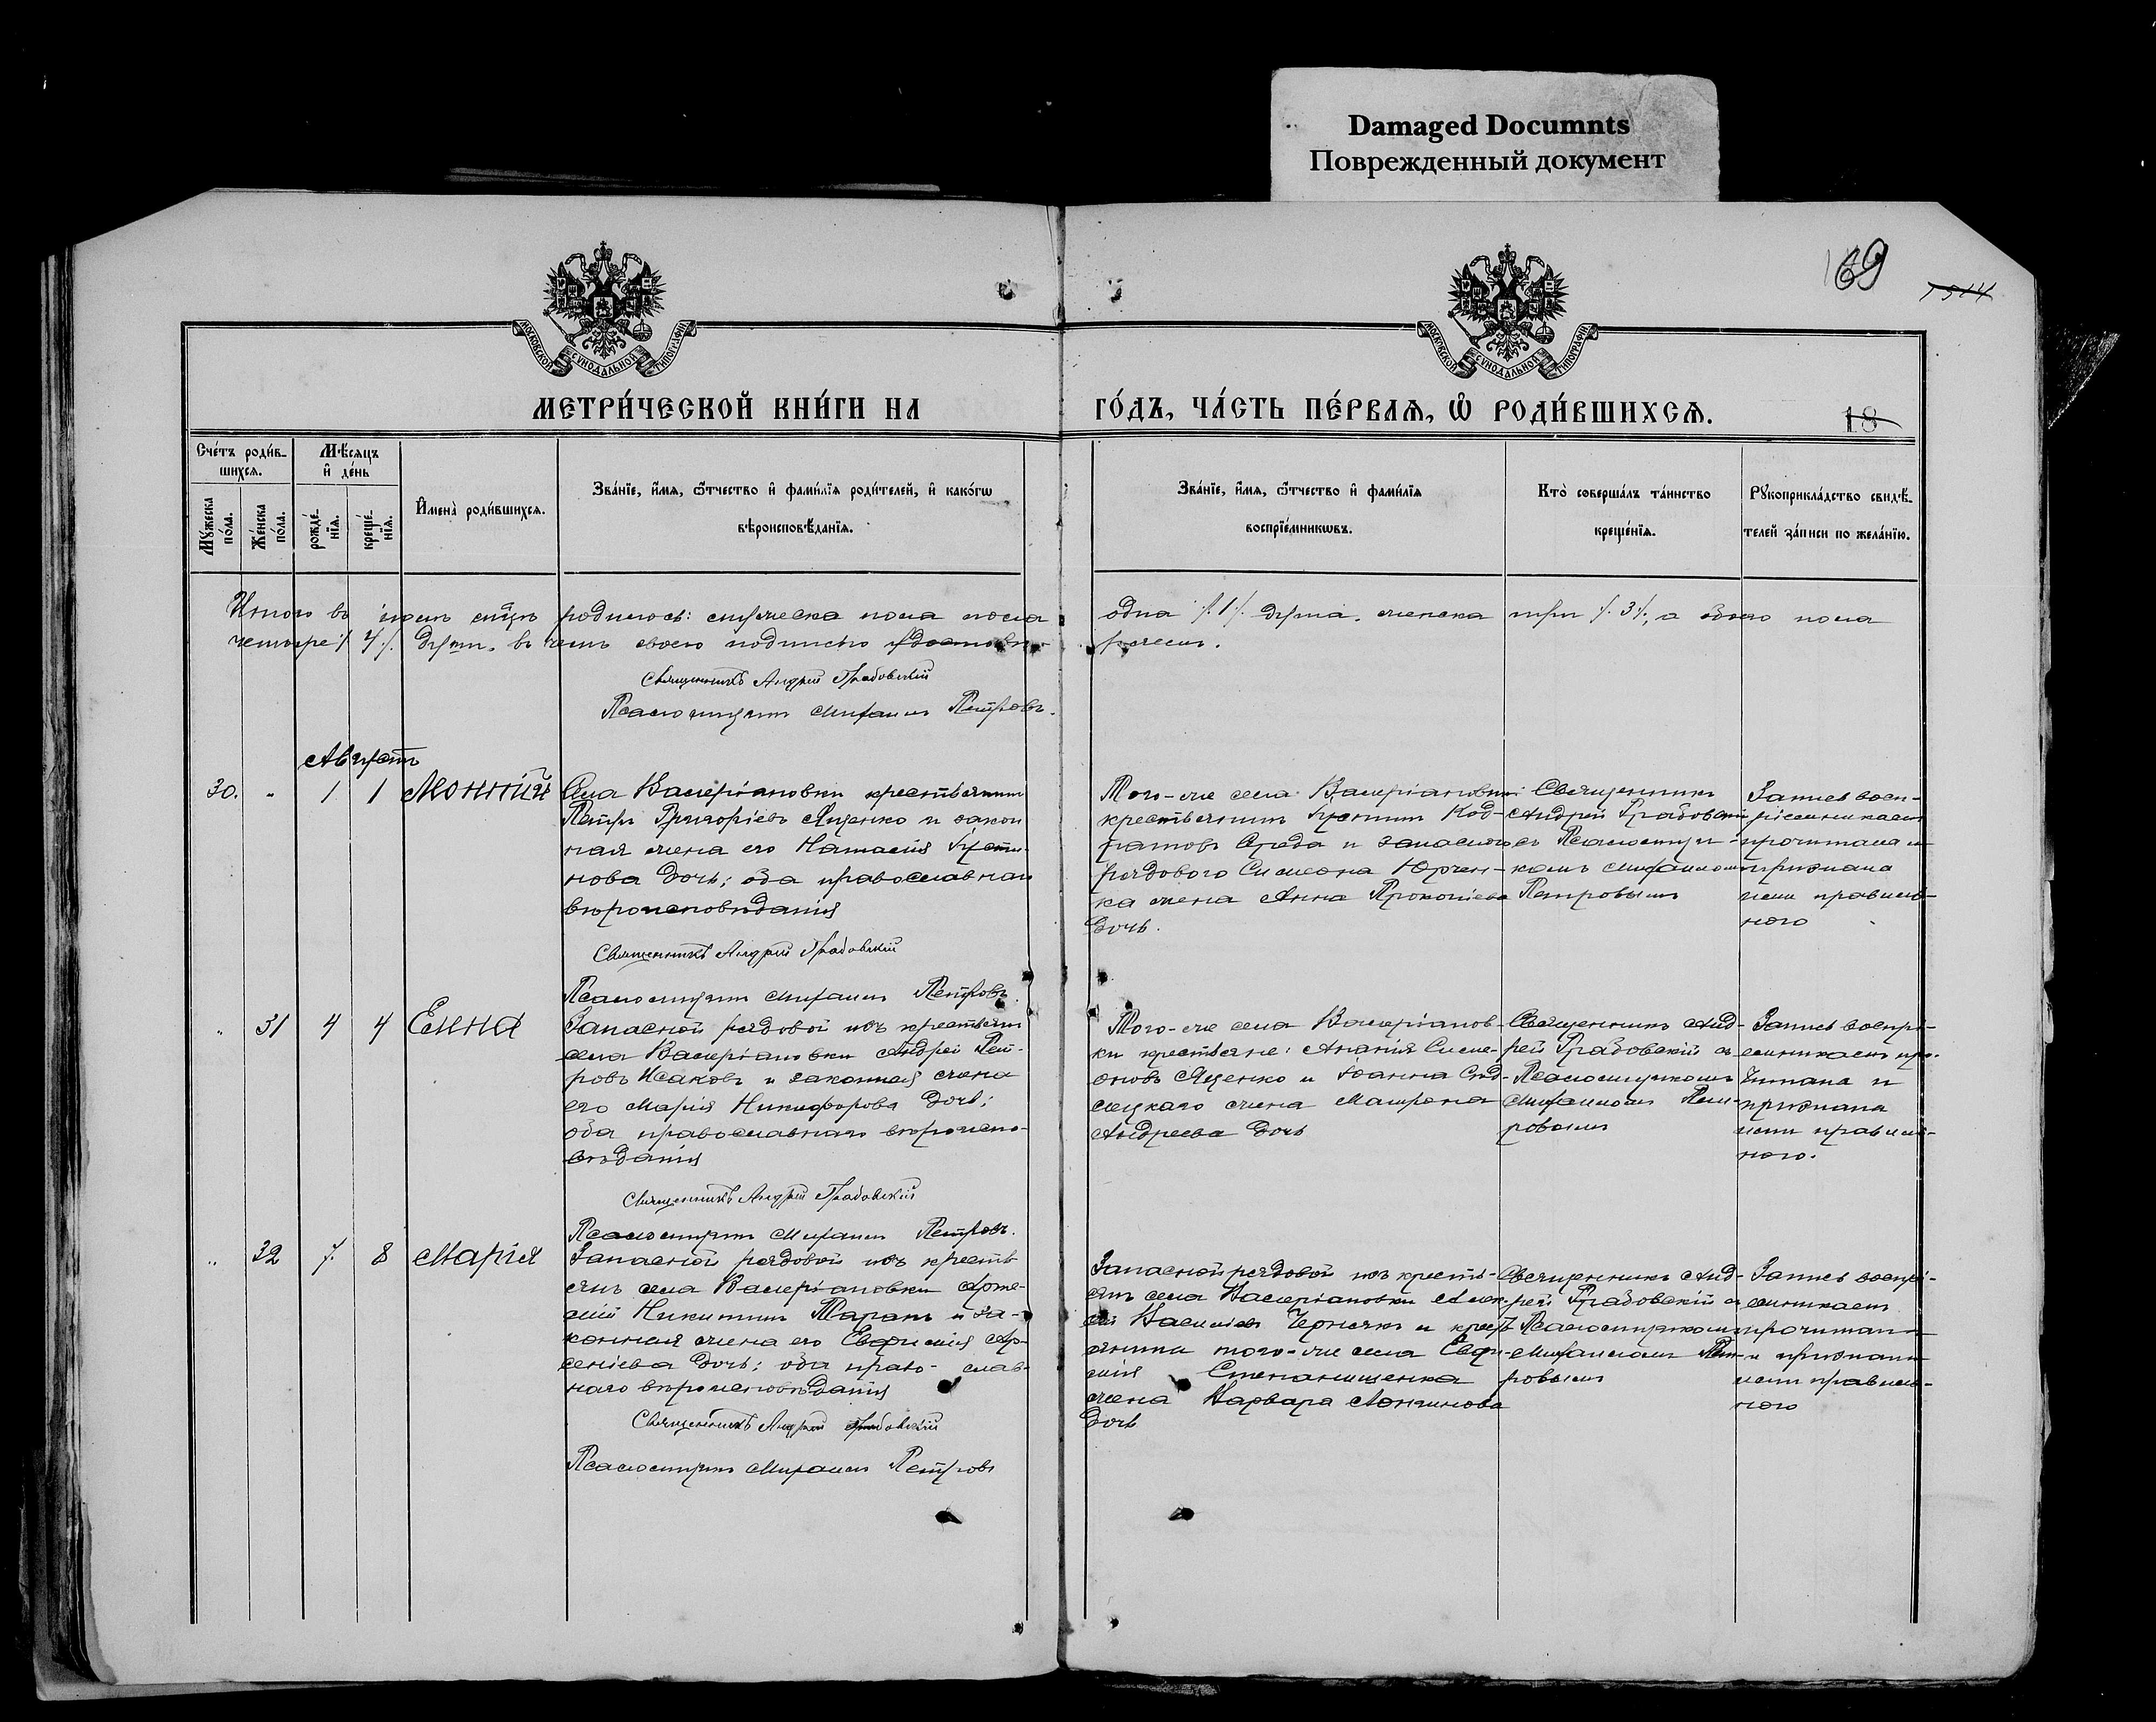 Damaged Documnts
Поврежденный документ
69
1514
МОСКОВСКОЙ СѴНОДАЛЬНОЙ ТИПОГРАФІИ
МОСКОВСКОЙ СѴНОДАЛЬНОЙ ТИПОГРАФІИ
МЕТРИ́ЧЕСКОЙ КНИ́ГИ НА
ГО́ДЪ, ЧА́СТЬ ПЕ́РВАЯ, Ѡ РОДИ́ВШИХСЯ.
18
Сче́тъ роди́в-
шихся.
Мѣ́сяцъ
и҆ де́нь
Му́жеска
по́ла.
Же́нска
по́ла.
рожде́-
нїя.
креще́-
нїя.
И҆мена̀ роди́вшихся.
Зва́нїе, и҆́мя, ѻ҆́тчество и҆ фамѝлїя роди́телей, и҆ како́гѡ
вѣроисповѣ́данїя.
Зва́нїе, и҆́мя, ѻ҆́тчество и҆ фамѝлїя
воспрїе́мникѡвъ.
Кто̀ соверша́лъ та́инство
креще́нїя.
Рукоприкла́дство свидѣ́-
телей за́писи по жела́нїю.
Итого въ родилось: мужеска пола
четыре /4/. душ. въ чемъ своею подписью удостовѣ-
одна /1/ душа, женска три /3/, а обоего пола
ряемъ.
Священникъ Андрей Грабовскій
Псаломщикъ Михаилъ Петровъ.
Августъ
30. " 1 1
Села Валеріановки крестьянинъ
Петръ Григоріевъ Яценко и закон
ная жена его Наталія Іусти-
нова дочь; оба православнаго
вѣроисповѣданія
Священникъ Андрей Грабовскій
Псаломщикъ Михаилъ Петровъ.
Того-же села Валеріановки
крестьянинъ Іустинъ Код-
ратовъ Середа и запаснаго
рядового Симеона Юрчен-
ка жена Анна Прокопіева
дочь.
Священникъ
Андрей Грабовскій
съ Псаломщи-
комъ Михаиломъ
Петровымъ
Запись восп-
ріемникамъ
прочитана и
признана
ими правиль-
ного
" 31 4 4 Елена
Запасной рядовой изъ крестьян
села Валеріановки Андрей Пет-
ровъ Исаковъ и законная жена
его Марія Никифорова дочь;
оба православнаго вѣроиспо-
вѣданія
Священникъ Андрей Грабовскій
Псаломщикъ Михаилъ Петровъ.
Того-же села Валеріанов-
ки крестьяне: Ананія Симе-
оновъ Яценко и Іоанна
жена Матрона
Андреева дочь
Священникъ Анд-
рей Грабовскій съ
Псаломщикомъ
Михаиломъ Пет-
ровымъ
Запись воспрі-
емникамъ про-
читана и
признана
ими правиль-
ного.
" 32 7. 8 Марія
Запасной рядовой изъ кресть
янъ села Валеріановки Арте-
мій Никитинъ Таранъ и за-
конная жена его Евфимія Ар-
сеніева дочь; оба право- слав-
наго вѣроисповѣданія
Священникъ Андрей Грабовскій
Псаломщикъ Михаилъ Петровъ
Запасной рядовой изъ кресть-
янъ села Валеріановки Алек-
сѣй Васильевъ Чернякъ и крест
янина того-же села Евфи-
мія Степанищенка
жена Варвара Логинова
дочь
Священникъ Анд-
рей Грабовскій съ
Псаломщикомъ
Михаиломъ Пет-
ровымъ
Запись воспрі-
емникамъ
прочитана
и признана
ими правиль-
ного